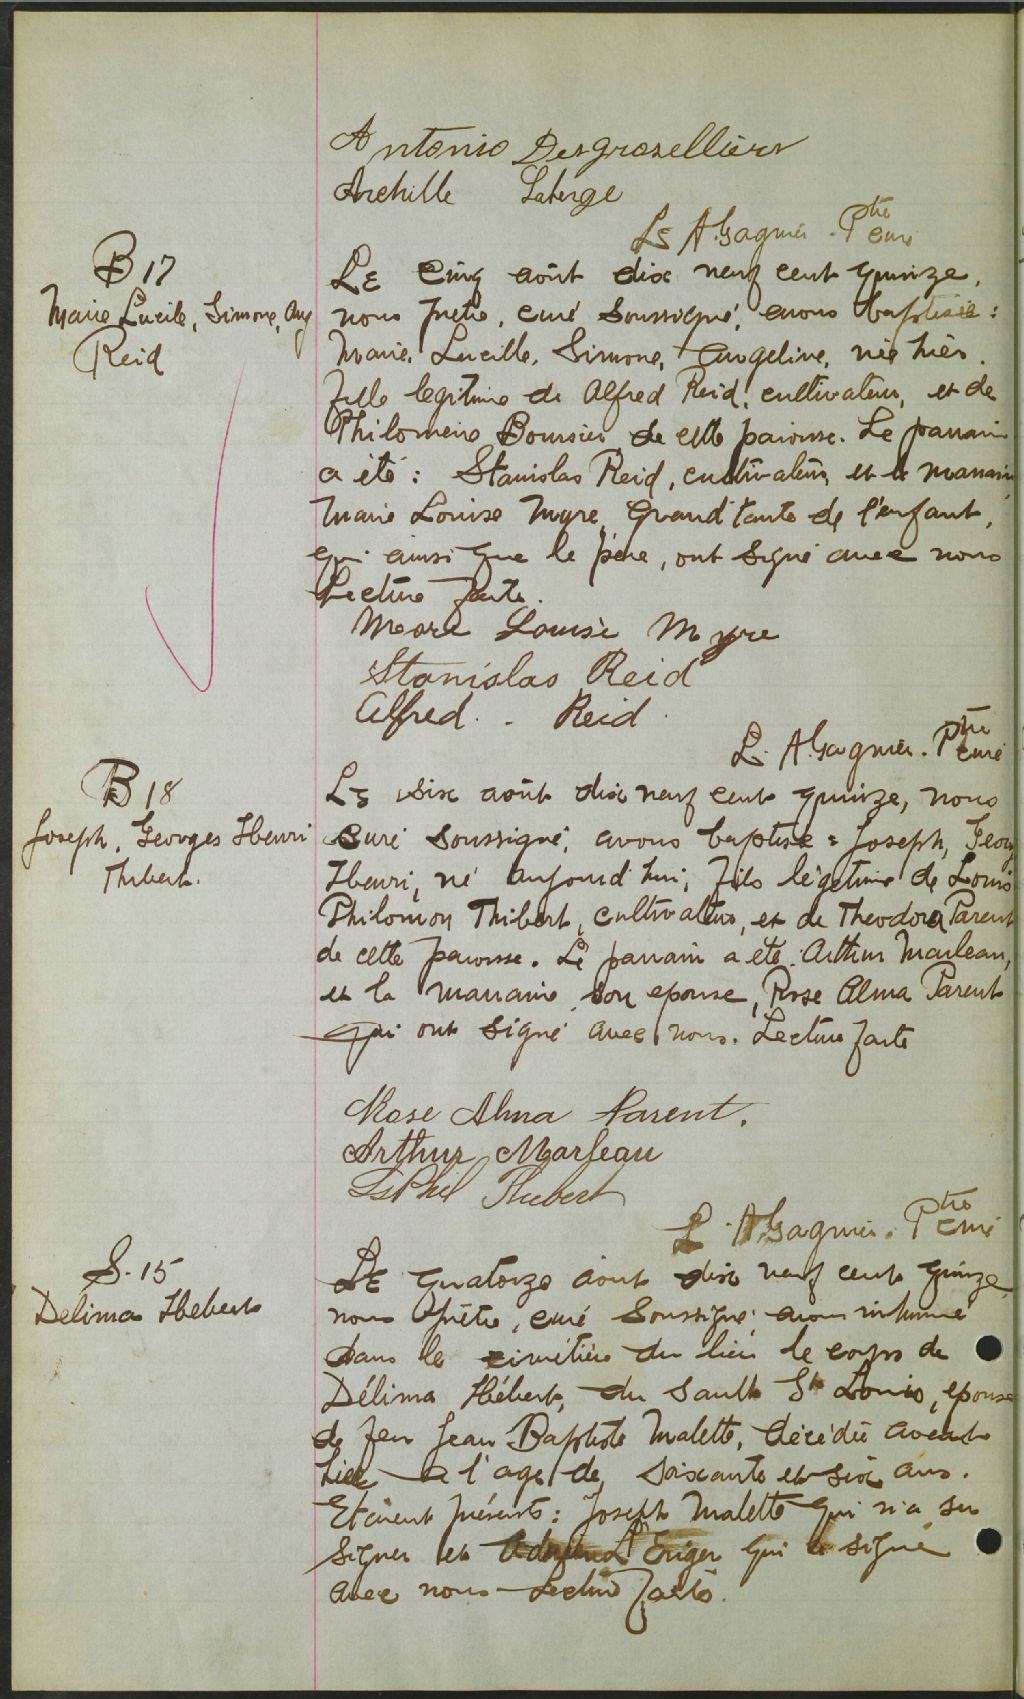 Antonio Desgroselliers
Archille Laberge
L. A. Gagnier. Ptre
curé
B 17
Marie Lucile, Simone, Ang
Reid
Le cinq août dix neuf cent quinze,
nous prêtre, curé soussigné, avons baptisée:
Marie, Lucille, Simone, Angeline, née hier.
fille légitime de Alfred Reid, cultivateur, et de
Philomène Boursier de cette paroisse. Le parrain
a été: Stanislas Reid, cultivateur, et la marraine
Marie Louise Myre, Grand'tante de l'enfant,
qui ainsi que le père, ont signé avec nous
Lecture faite.
Louise Myre
Stanislas Reid
Alfred.. Reid
L. A. Gagnier. Ptre
curé
B 18
Joseph, Georges Henri
Thibert.
Le six août dix neuf cent quinze, nous
curé soussigné, avons baptisé: Joseph, Georg
Henri, né aujourd'hui, fils légitime de Louis
Philomon Thibert, cultivateur, et de Theodora Parent
de cette paroisse. Le parrain a été Arthur Marleau,
et la marraine son épouse, Rose Alma Parent
qui ont signé avec nous. Lecture faite
Rose Alma Parent.
Arthur Marleau
Ls Phil Thibert
L. A. Gagnier. Ptre
curé
S. 15
Délima Hébert
Le quatorze août dix neuf cent quinze
nous prêtre, curé soussigné avons inhumé
dans le cimetière du lieu le corps de
Délima Hébert, du Sault St Louis, épouse
de feu Jean Baptiste Malette, décédée avant
hier à l'age de soixante et six ans.
Etaient présents: Joseph Malette qui n'a su
signer et Euger qui a signé
avec nous Lecture faite.